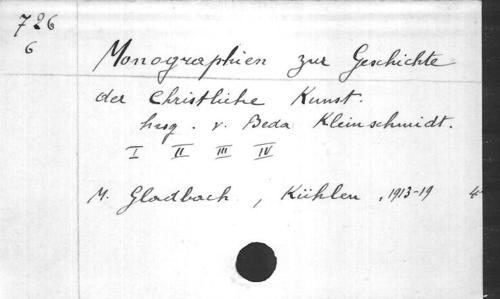 726
6
Monographien zur Geschichte
der Christliche Kunst.
hrsg. v. Beda Kleinschmidt.
I II III IV
M. Gladbach, Kühlen, 1913-19 4°